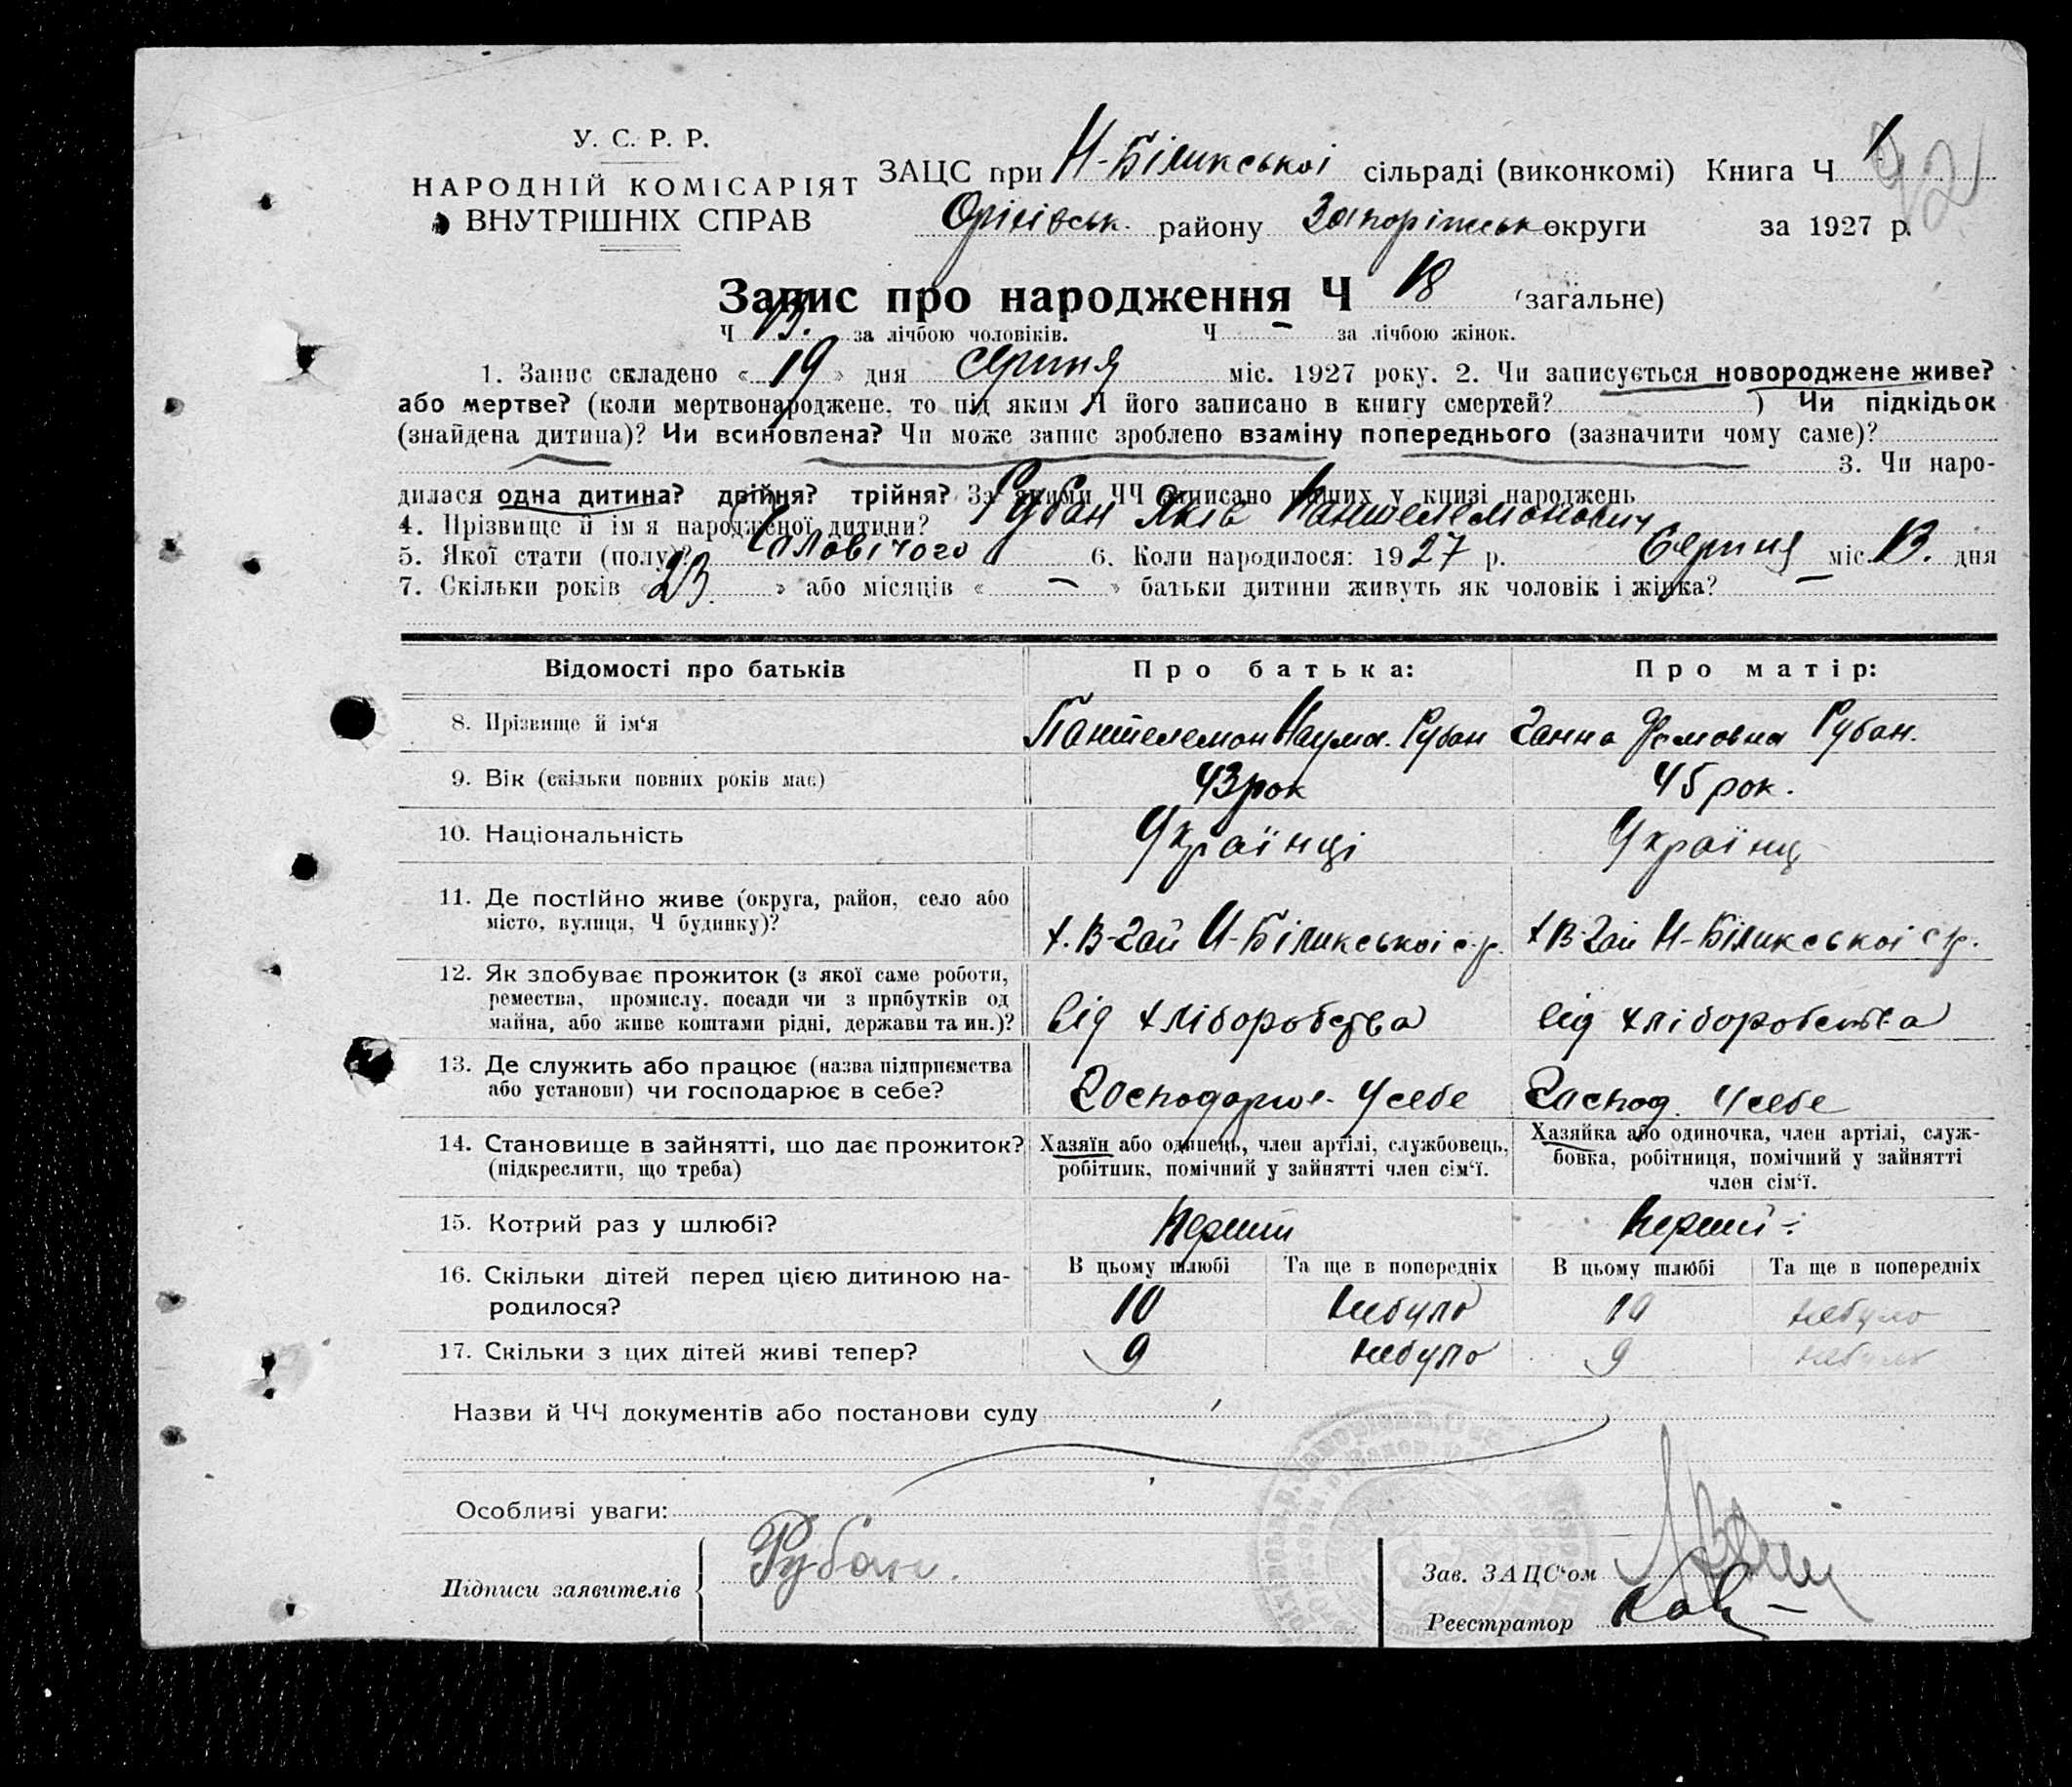 У. С. Р. Р.
НАРОДНІЙ КОМІСАРІЯТ
ВНУТРІШНІХ СПРАВ
ЗАЦС при Н-Біликської сільраді (виконкомі) Книга Ч 1
92
Оріхівськ. району Запоріжськ округи за 1927 р.
Запис про народження Ч 18 (загальне)
Ч 13. за лічбою чоловіків. Ч – за лічбою жінок.
1. Запис складено « 19 » дня серпня міс. 1927 року. 2. Чи записується новороджене живе?
або мертве? (коли мертвонароджене, то під яким Ч його записано в книгу смертей? ) Чи підкідьок
(знайдена дитина)? Чи всиновлена? Чи може запис зроблено взаміну попереднього (зазначити чому саме)?
3. Чи наро-
дилася одна дитина? двійня? трійня? За якими ЧЧ записано інших у книзі народжень
4. Прізвище й ім'я народженої дитини? Рубан Яків Пантелемонович
5. Якої стати (полу)? Чоловічого 6. Коли народилося: 1927 р. Серпня міс. 13. дня
7. Скільки років « 23. » або місяців « – » батьки дитини живуть як чоловік і жінка? –
Відомості про батьків Про батька: Про матір:
8. Прізвище й ім'я Пантелемон Наумов. Рубан Ганна Фомовна Рубан.
9. Вік (скільки повних років має) 43 рок 45 рок.
10. Національність Українці Українц
11. Де постійно живе (округа, район, село або
місто, вулиця, Ч будинку)? х. В-Гай Н-Біликської с.р. х В-Гай Н-Біликської с р.
12. Як здобуває прожиток (з якої саме роботи,
ремества, промислу, посади чи з прибутків од
майна, або живе коштами рідні, держави та ин.)? від хліборобства від хліборобства
13. Де служить або працює (назва підприємства
або установи) чи господарює в себе? Господарює. У себе Господ. У себе
14. Становище в зайнятті, що дає прожиток?
(підкреслити, що треба)
Хазяїн або одинець, член артілі, службовець,
робітник, помічний у зайнятті член сім'ї.
Хазяйка або одиночка, член артілі, служ-
бовка, робітниця, помічний у зайнятті
член сім'ї.
15. Котрий раз у шлюбі? перший перший
16. Скільки дітей перед цією дитиною на-
родилося?
В цьому шлюбі Та ще в попередніх В цьому шлюбі Та ще в попередніх
10 небуло 10 небуло
17. Скільки з цих дітей живі тепер? 9 небуло 9 небуло
Назви й ЧЧ документів або постанови суду
Особливі уваги:
Підписи заявителів Рубан.
Зав. ЗАЦС'ом
Реєстратор